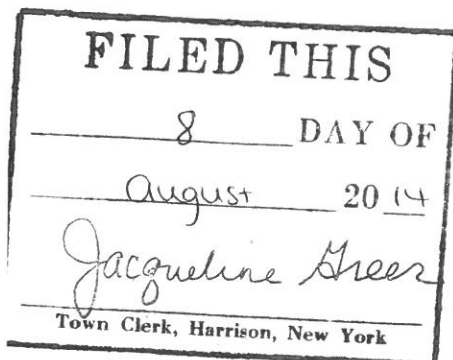 FILED THIS
8 DAY OF
August 2014
Jacqueline Greer
Town Clerk, Harrison, New York